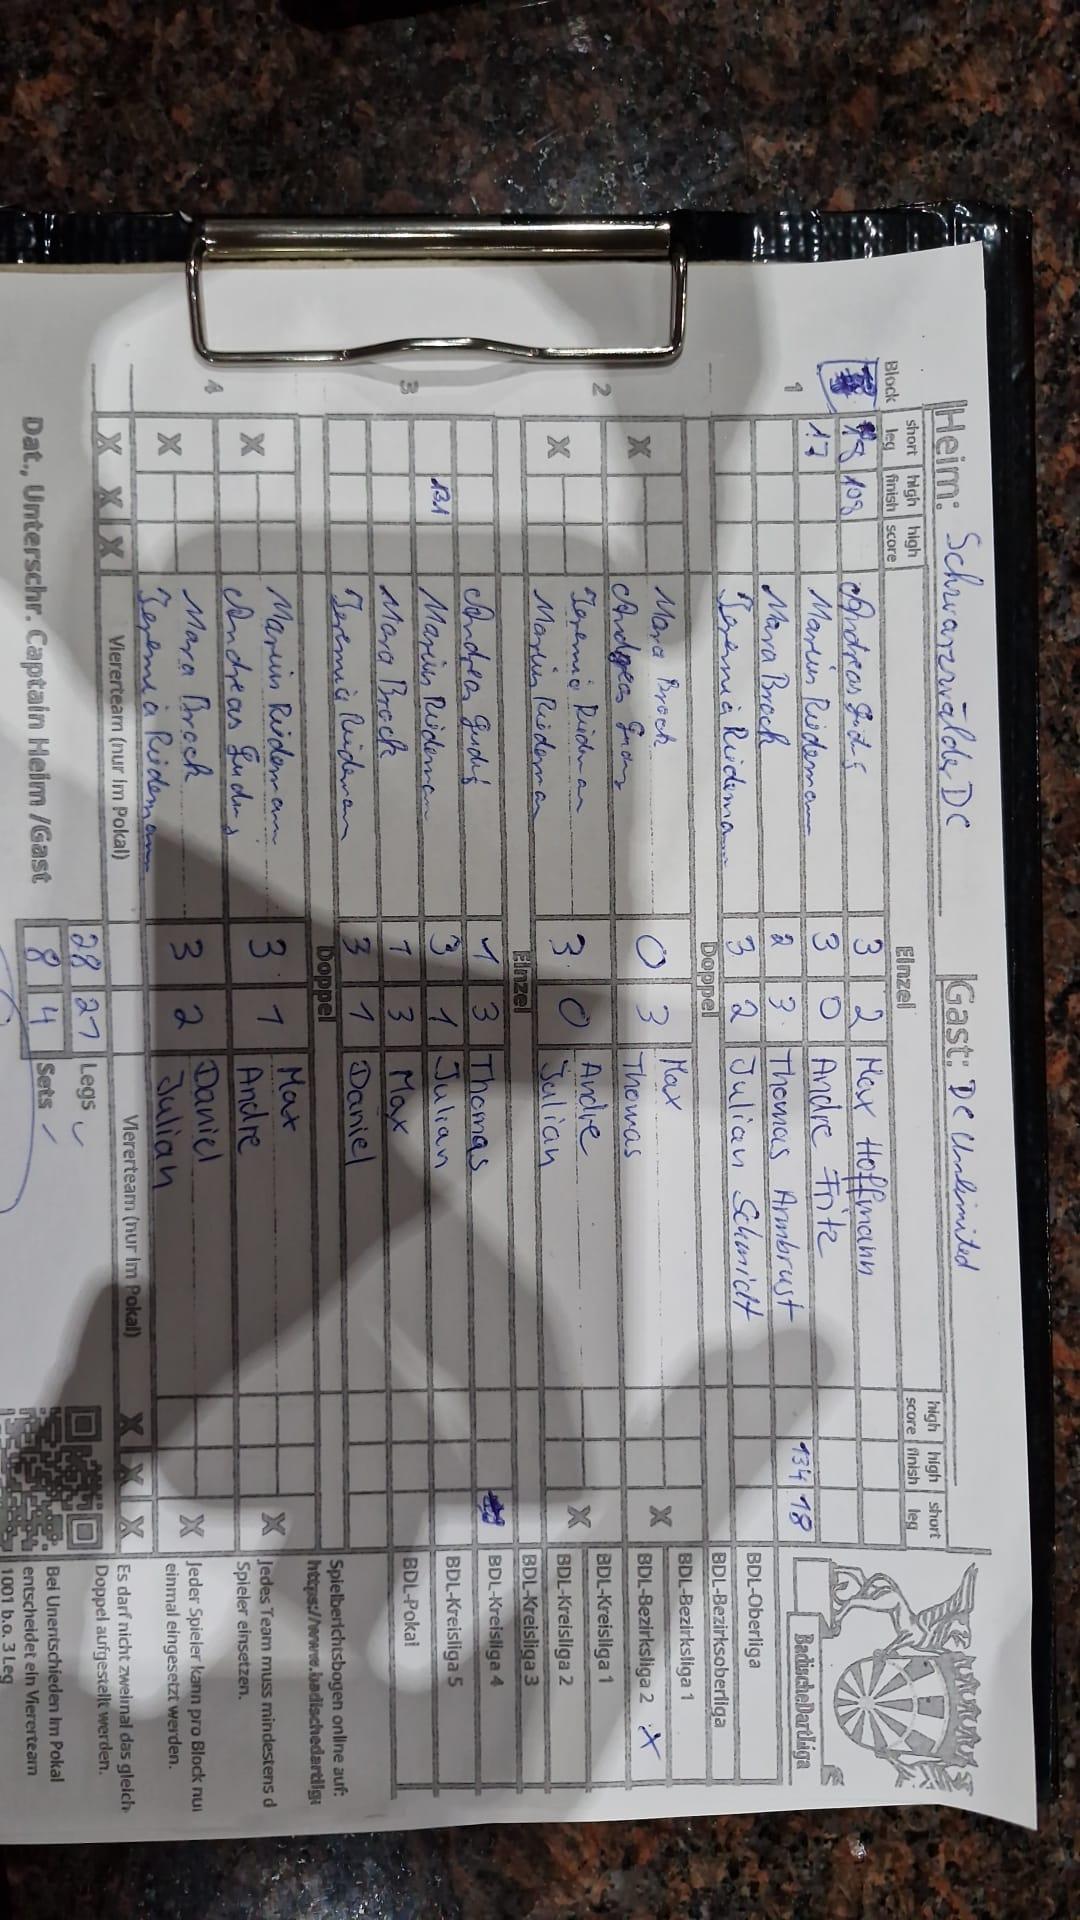 Heim: Schwarzwälder DC Gast: DC Unlimited
Block short leg high finish high score Einzel high score high finish short leg
18 108 3 2 Max Hoffmann
1 17 3 0 Andre Fritz
Mara Brock 2 3 Thomas Armbrust 134 18
3 2 Julian Schmidt
Doppel
2 Mara Brock 0 3 Max
X Andreas Thomas X
3 0 Andre X
X Julian
Einzel
Andreas 1 3 Thomas
3 131 3 1 Julian
Mara Brock 1 3 Max
3 1 Daniel
Doppel
3 1 Max X
4 X Andreas Andre
Mara Brock 3 2 Daniel X
X Julian
Viererteam (nur im Pokal) Viererteam (nur im Pokal)
X X X X X X
28 27 Legs
Dat., Unterschr. Captain Heim /Gast 8 4 Sets
BadischeDartLiga
BDL-Oberliga
BDL-Bezirksoberliga
BDL-Bezirksliga 1
BDL-Bezirksliga 2 X
BDL-Kreisliga 1
BDL-Kreisliga 2
BDL-Kreisliga 3
BDL-Kreisliga 4
BDL-Kreisliga 5
BDL-Pokal
Spielberichtsbogen online auf:
https://www.badischedartliga
Jedes Team muss mindestens
Spieler einsetzen.
Jeder Spieler kann pro Block nur
einmal eingesetzt werden.
Es darf nicht zweimal das gleich
Doppel aufgestellt werden.
Bei Unentschieden im Pokal
entscheidet ein Viererteam
1001 b.o. 3 Leg